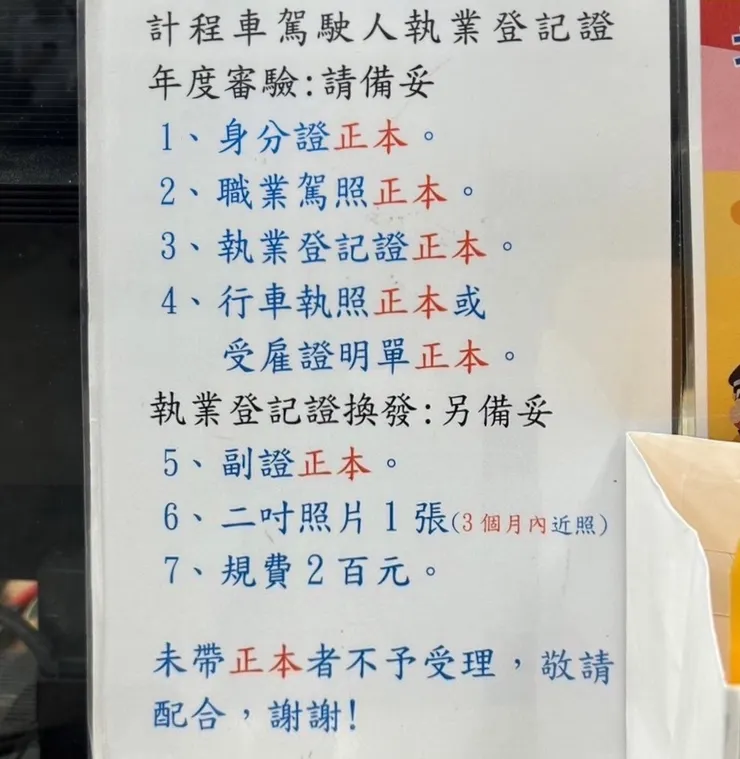 計程車駕駛人執業登記證
年度審驗:請備妥
1、身分證正本。
2、職業駕照正本。
3、執業登記證正本。
4、行車執照正本或
受雇證明單正本。
執業登記證換發:另備妥
5、副證正本。
6、二吋照片1張(3個月內近照)
7、規費2百元。
未帶正本者不予受理,敬請
配合,謝謝!